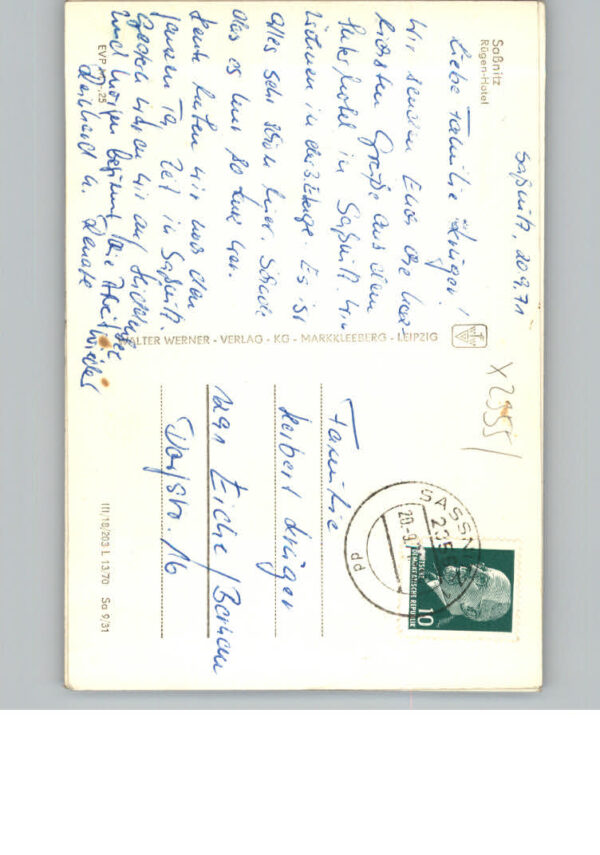 Saßnitz
Rügen-Hotel
Saßnitz, 20.9.71
Liebe Familie Krüger!
Wir senden Euch die herz-
lichsten Grüße aus dem
hotel in Saßnitz. Wir
in der Etage. Es ist
alles sehr schön hier. Schade
das es nur so kurz war.
Heute hatten wir noch den
ganzen Tag Zeit in Saßnitz.
Gestern waren wir auf Hiddensee
und morgen beginnt die Arbeit wieder
Reinhard u. Renate
EVP M -.25
WALTER WERNER - VERLAG - KG - MARKKLEEBERG - LEIPZIG
X 2355/
Familie
Herbert Krüger
1291 Eiche/Bernau
Dorfstr. 16
SASSNITZ
2355
20.-9.71
pp
DEUTSCHE
DEMOKRATISCHE REPUBLIK
10
III/18/203 L 13.70 Sa 9/31